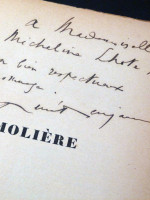 à Mademoiselle
Micheline Lhote
bien respectueux
hommage
MOLIÈRE